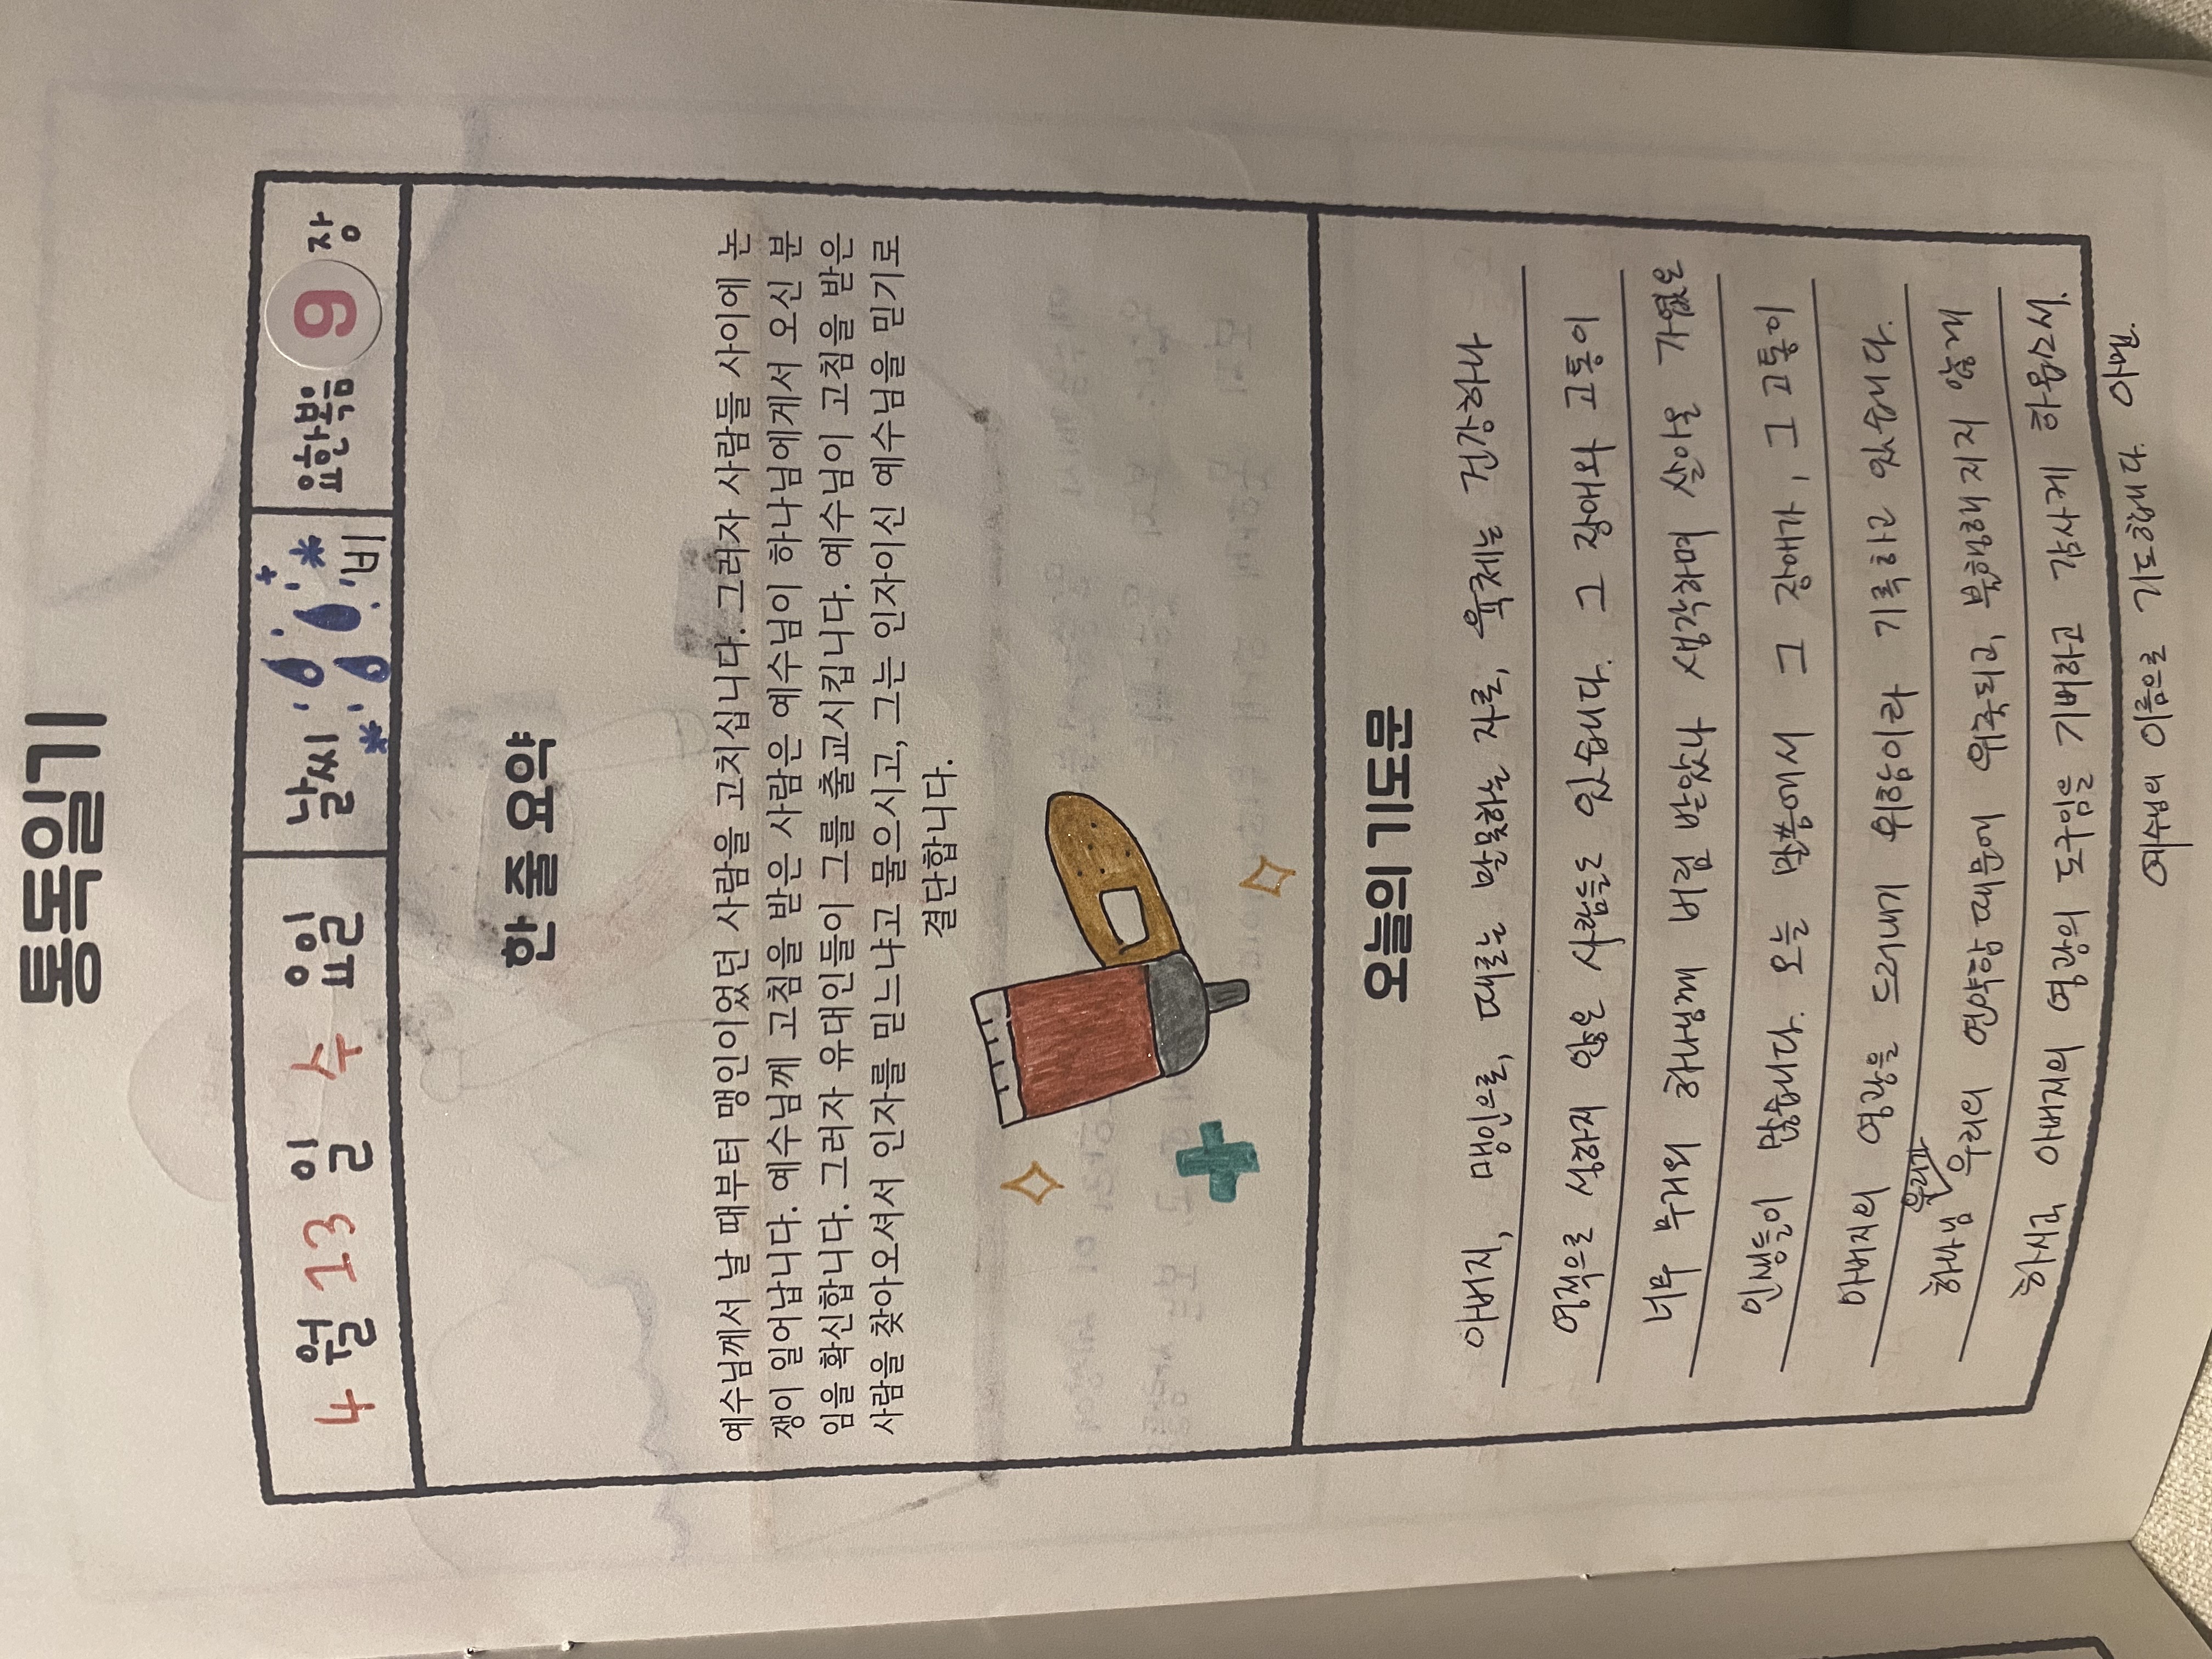 통독일기
4 월 13 일 수 요일 날씨 비 요한복음 9 장
한 줄 요약
예수님께서 날 때부터 맹인이었던 사람을 고치십니다. 그러자 사람들 사이에 논
쟁이 일어납니다. 예수님께 고침을 받은 사람은 예수님이 하나님에게서 오신 분
임을 확신합니다. 그러자 유대인들이 그를 출교시킵니다. 예수님이 고침을 받은
사람을 찾아오셔서 인자를 믿느냐고 물으시고, 그는 인자이신 예수님을 믿기로
결단합니다.
오늘의 기도문
아버지, 맹인으로, 때로는 말못하는 자로, 육체는 건강하나
영적으로 성하지 않은 사람들도 있습니다. 그 장애와 고통이
너무 무거워 하나님께 버림 받았나 생각하며 살아온 가엾은
인생들이 많습니다. 오늘 말씀에서 그 장애가, 그 고통이
아버지의 영광을 드러내기 위함이라 기록하고 있습니다.
하나님 우리가 우리의 연약함 때문에 위축되고, 불행해지지 않게
하시고 아버지의 영광의 도구임을 기뻐하고 감사케 하옵소서.
예수님의 이름으로 기도합니다. 아멘.